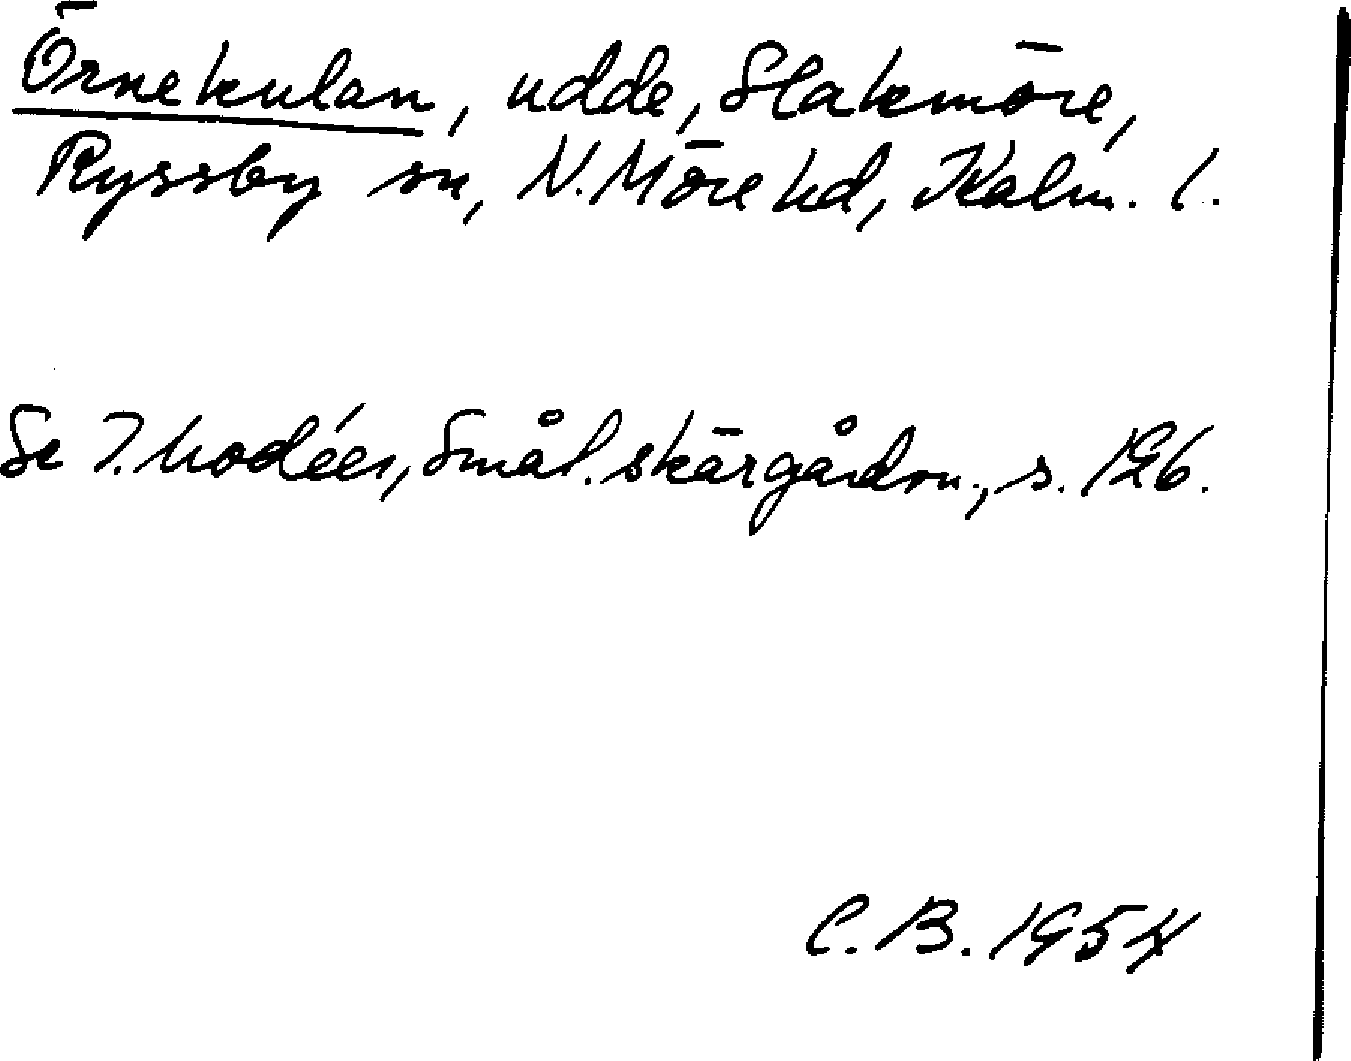 Örnekulan, udde, Slakmöre,
Ryssby sn, N. Möre hd, Kalm. l.
Se I. Modéer, Smål. skärgårdsn., s. 126.
C. B. 1954